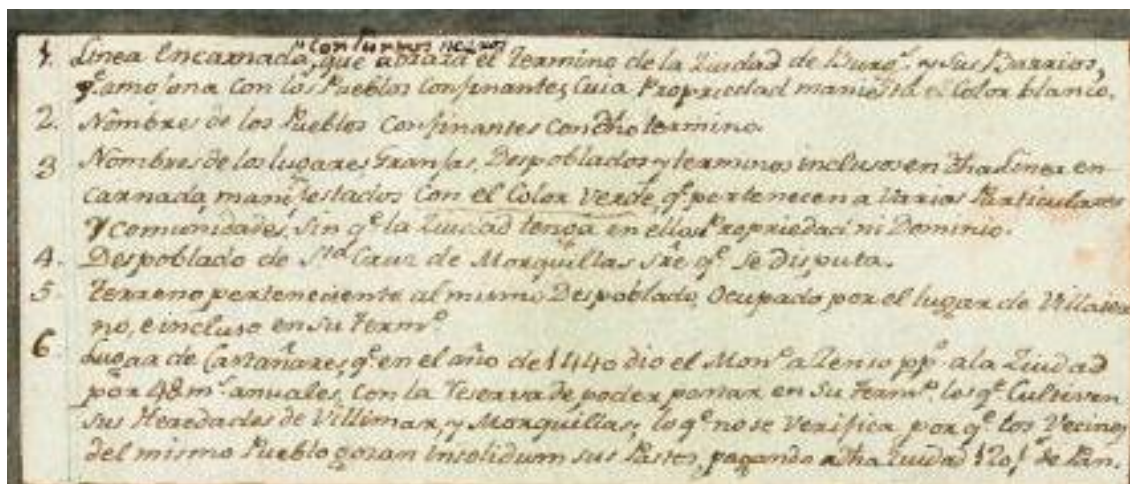 con puntos negros
1. Linea Encarnada, que abraza el Termino de la Ziudad de Burgs. y sus Barrios,
q.e amojona con los Pueblos confinantes, cuia Propriedad manifiesta el Color blanco.
2. Nombres de los Pueblos Confinantes con dho termino.
3 Nombres de los lugares, Granjas, Despoblados y terminos inclusos en dha Linea en-
carnada, manifestados Con el Color Verde, q.e pertenecen a Varios Particulares
y comunidades, sin q.e la Ziudad tenga en ellos Propriedad ni Dominio.
4. Despoblado de S.ta Cruz de Morquillas sre q.e se disputa.
5. Terreno perteneciente al mismo Despoblado, Ocupado por el lugar de Villaser
no, e incluso en su term.o
6 Lugar de Castañares, q.e en el año de 1440 dio el Mon.o a Zenso pp.o a la Ziudad
por 48 m.s anuales, con la reserva de poder pastar en su term.o los q.e Cultiven
sus Heredades de Villimar, y Morquillas; lo q.e no se verifica por q.e los Vecinos
del mismo Pueblo gozan insolidum sus Pastos, pagando a dha Ziudad 120 f.s de Pan.